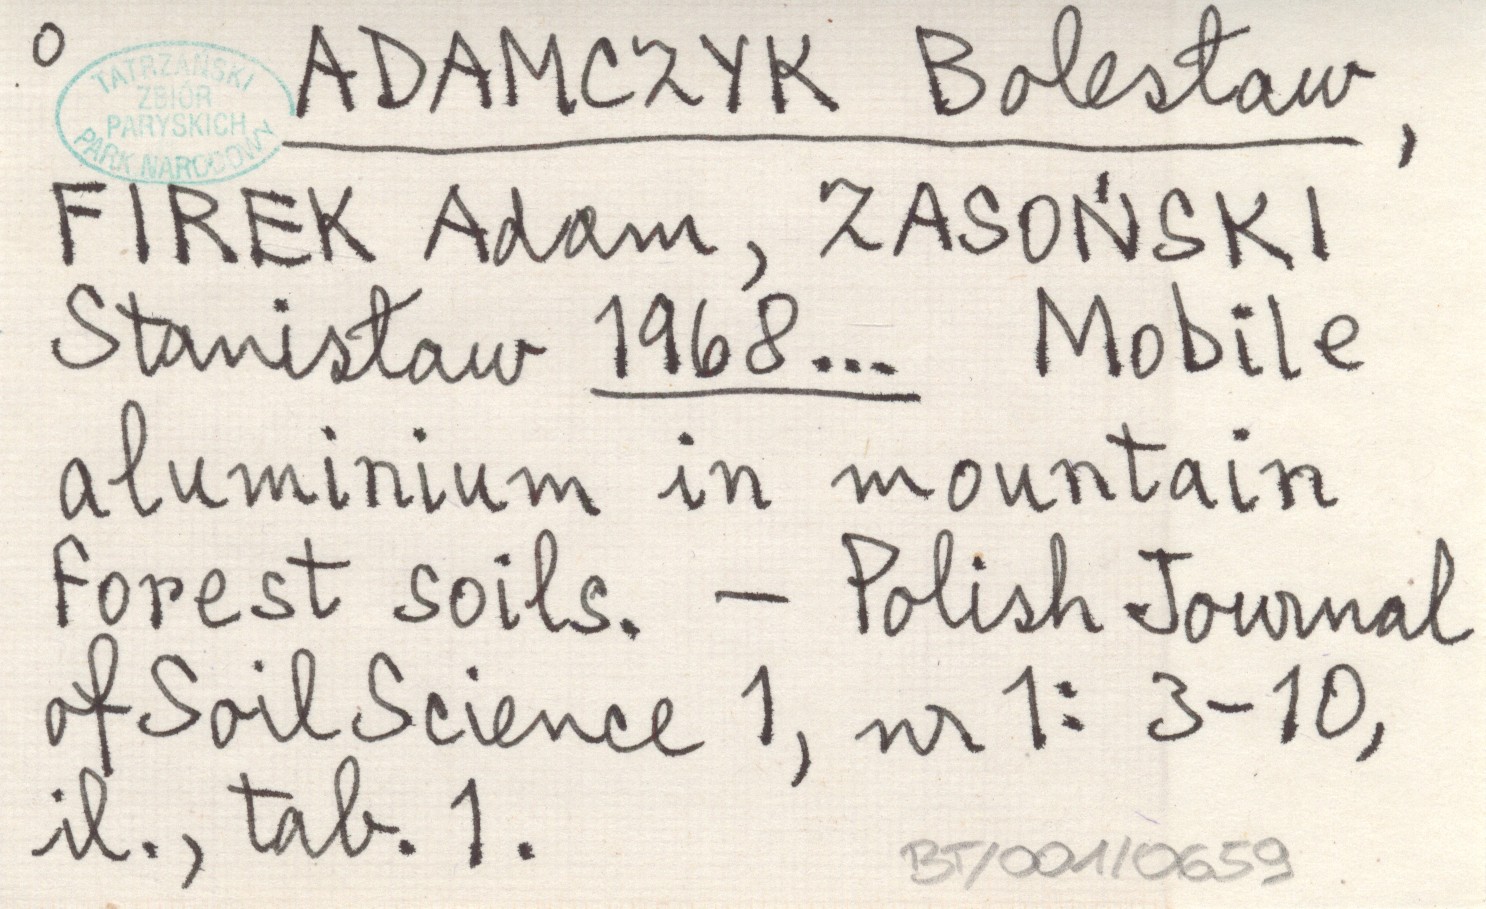 o ADAMCZYK Bolesław,
TATRZAŃSKI
ZBIÓR
PARYSKICH
PARK NARODOWY
FIREK Adam, ZASOŃSKI
Stanisław 1968... Mobile
aluminium in mountain
forest soils. – Polish Journal
of Soil Science 1, nr 1: 3-10,
il., tab. 1.
BT/001/0659